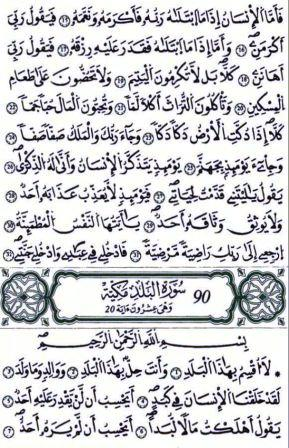 فَأَمَّا ٱلۡإِنسَٰنُ إِذَا مَا ٱبۡتَلَىٰهُ رَبُّهُۥ فَأَكۡرَمَهُۥ وَنَعَّمَهُۥ ١٥ فَيَقُولُ رَبِّيَ
أَكۡرَمَنِۦ ١٦ وَأَمَّآ إِذَا مَا ٱبۡتَلَىٰهُ فَقَدَرَ عَلَيۡهِ رِزۡقَهُۥ ١٧ فَيَقُولُ رَبِّيَ
أَهَٰنَنِۦ ١٨ كَلَّاۖ بَل لَّا تُكۡرِمُونَ ٱلۡيَتِيمَ ١٩ وَلَا تَحُضُّونَ عَلَىٰ طَعَامِ
ٱلۡمِسۡكِينِ ٢٠ وَتَأۡكُلُونَ ٱلتُّرَاثَ أَكۡلٗا لَّمّٗا ٢١ وَتُحِبُّونَ ٱلۡمَالَ حُبّٗا جَمّٗا ٢٢
كَلَّآۖ إِذَا دُكَّتِ ٱلۡأَرۡضُ دَكّٗا دَكّٗا ٢٣ وَجَآءَ رَبُّكَ وَٱلۡمَلَكُ صَفّٗا صَفّٗا ٢٤
وَجِاْيٓءَ يَوۡمَئِذِۭ بِجَهَنَّمَ ٢٥ يَوۡمَئِذٖ يَتَذَكَّرُ ٱلۡإِنسَٰنُ وَأَنَّىٰ لَهُ ٱلذِّكۡرَىٰ ٢٦
يَقُولُ يَٰلَيۡتَنِي قَدَّمۡتُ لِحَيَاتِي ٢٧ فَيَوۡمَئِذٖ لَّا يُعَذِّبُ عَذَابَهُۥٓ أَحَدٞ ٢٨
وَلَا يُوثِقُ وَثَاقَهُۥٓ أَحَدٞ ٢٩ يَٰٓأَيَّتُهَا ٱلنَّفۡسُ ٱلۡمُطۡمَئِنَّةُ ٣٠
ٱرۡجِعِيٓ إِلَىٰ رَبِّكِ رَاضِيَةٗ مَّرۡضِيَّةٗ ٣١ فَٱدۡخُلِي فِي عِبَٰدِي وَٱدۡخُلِي جَنَّتِي ٣٢
90 سُورَةُ ٱلۡبَلَدِ مَكِّيَّة
وَهْيَ عِشْرُونَ ءَايَة 20
بِسۡمِ ٱللَّهِ ٱلرَّحۡمَٰنِ ٱلرَّحِيمِ
لَآ أُقۡسِمُ بِهَٰذَا ٱلۡبَلَدِ ١ وَأَنتَ حِلُّۢ بِهَٰذَا ٱلۡبَلَدِ ٢ وَوَالِدٖ وَمَا وَلَدَ ٣
لَقَدۡ خَلَقۡنَا ٱلۡإِنسَٰنَ فِي كَبَدٍ ٤ أَيَحۡسِبُ أَن لَّن يَقۡدِرَ عَلَيۡهِ أَحَدٞ ٥
يَقُولُ أَهۡلَكۡتُ مَالٗا لُّبَدًا ٦ أَيَحۡسِبُ أَن لَّمۡ يَرَهُۥٓ أَحَدٌ ٧